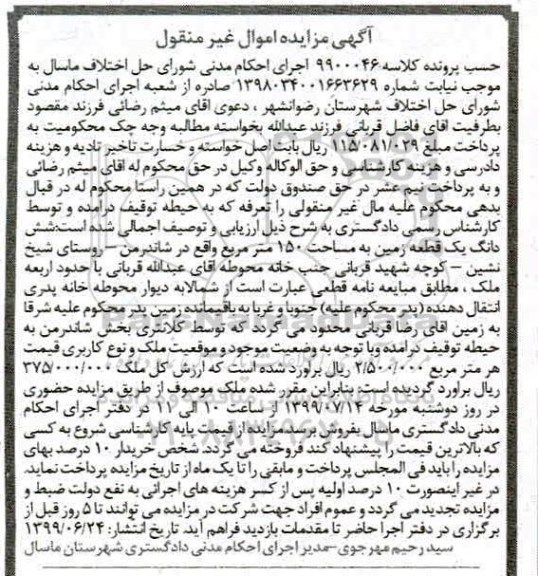 آگهی مزایده اموال غیر منقول
حسب پرونده کلاسه ۹۹۰۰۰۴۶ اجرای احکام مدنی شورای حل اختلاف ماسال به
موجب نیابت شماره ۱۳۹۸۰۳۴۰۰۱۶۶۳۶۲۹ صادره از شعبه اجرای احکام مدنی
شورای حل اختلاف شهرستان رضوانشهر ، دعوی آقای میثم رضائی فرزند مقصود
بطرفیت آقای فاضل قربانی فرزند عبدالله بخواسته مطالبه وجه چک محکومیت به
پرداخت مبلغ ۱۱۵/۰۸۱/۰۳۹ ریال بابت اصل خواسته و خسارت تاخیر تادیه و هزینه
دادرسی و هزینه کارشناسی و حق الوکاله وکیل در حق محکوم له آقای میثم رضائی
و به پرداخت نیم عشر در حق صندوق دولت که در همین راستا محکوم له در قبال
بدهی محکوم علیه مال غیر منقولی را تعرفه که به حیطه توقیف درآمده و توسط
کارشناس رسمی دادگستری به شرح ذیل ارزیابی و توصیف اجمالی شده است:شش
دانگ یک قطعه زمین به مساحت ۱۵۰ متر مربع واقع در شاندرمن – روستای شیخ
نشین – کوچه شهید قربانی جنب خانه محوطه آقای عبدالله قربانی با حدود اربعه
ملک ، مطابق مبایعه نامه قطعی عبارت است از شمالا به دیوار محوطه خانه پدری
انتقال دهنده (پدر محکوم علیه) جنوبا و غربا به باقیمانده زمین پدر محکوم علیه شرقا
به زمین آقای رضا قربانی محدود می گردد که توسط کلانتری بخش شاندرمن به
حیطه توقیف درآمده وبا توجه به وضعیت موجود و موقعیت ملک و نوع کاربری قیمت
هر متر مربع ۲/۵۰۰/۰۰۰ ریال برآورد شده است که ارزش کل ملک ۳۷۵/۰۰۰/۰۰۰
ریال برآورد گردیده است؛ بنابراین مقرر شده ملک موصوف از طریق مزایده حضوری
در روز دوشنبه مورخه ۱۳۹۹/۰۷/۱۴ از ساعت ۱۰ الی ۱۱ در دفتر اجرای احکام
مدنی دادگستری ماسال بفروش برسد.مزایده از قیمت پایه کارشناسی شروع به کسی
که بالاترین قیمت را پیشنهاد کند فروخته می گردد. شخص خریدار ۱۰ درصد بهای
مزایده را باید فی المجلس پرداخت و مابقی را تا یک ماه از تاریخ مزایده پرداخت نماید.
در غیر اینصورت ۱۰ درصد اولیه پس از کسر هزینه های اجرائی به نفع دولت ضبط و
مزایده تجدید می گردد و عموم افراد جهت شرکت در مزایده می توانند تا ۵ روز قبل از
برگزاری در دفتر اجرا حاضر تا مقدمات بازدید فراهم آید. تاریخ انتشار: ۱۳۹۹/۰۶/۲۴
سید رحیم مهرجوی–مدیر اجرای احکام مدنی دادگستری شهرستان ماسال